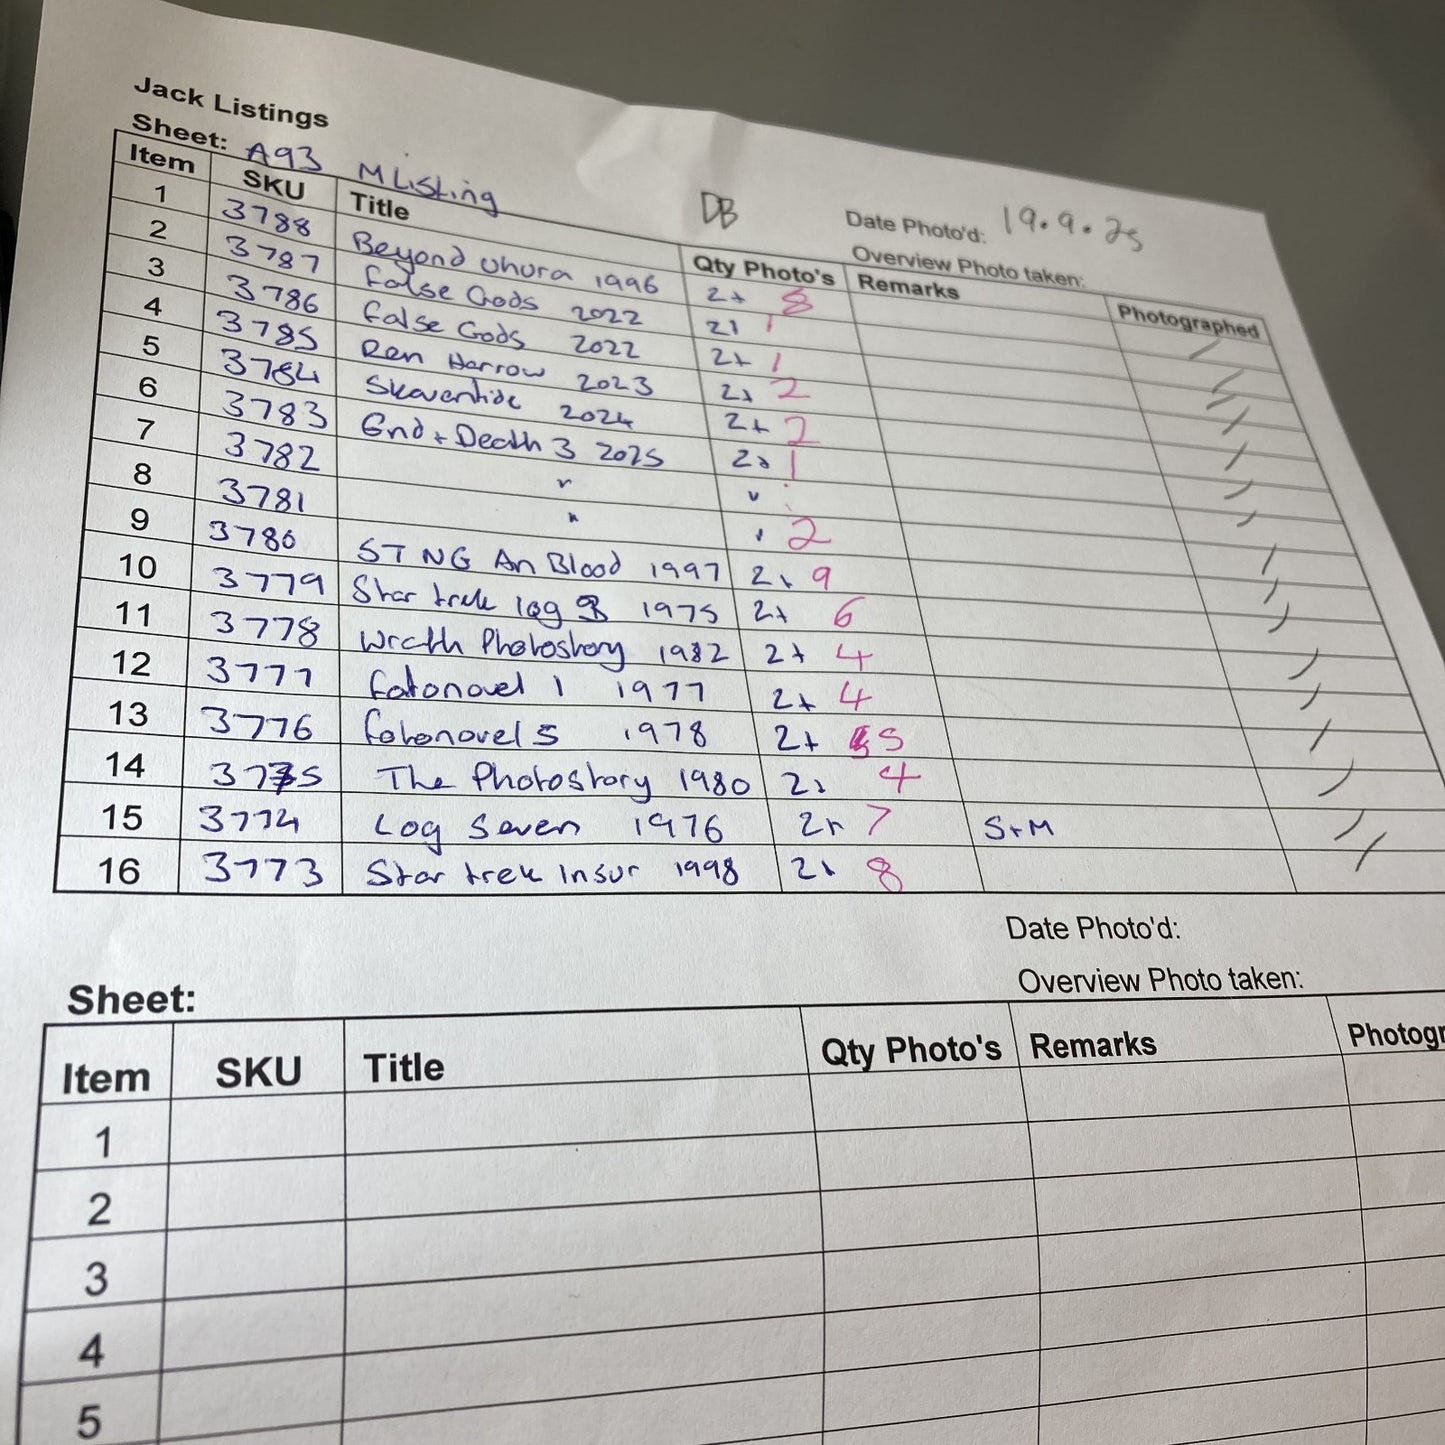 Jack Listings
Sheet: A93 M Listing DB Date Photo'd: 19.9.25
Overview Photo taken:
Item SKU Title Qty Photo's Remarks Photographed
1 3788 Beyond Uhura 1996 2+ 8
2 3787 False Gods 2022 2+ 1
3 3786 False Gods 2022 2+ 1
4 3785 Ren Harrow 2023 2+ 2
5 3784 Skaventide 2024 2+ 2
6 3783 End + Death 3 2025 2+ 1
7 3782 " "
8 3781 " " 2
9 3780 STNG An Blood 1997 2+ 9
10 3779 Star trek log 8 1975 2+ 6
11 3778 Wrath Photostory 1982 2+ 4
12 3777 fotonovel 1 1977 2+ 4
13 3776 fotonovel 5 1978 2+ 5
14 3775 The Photostory 1980 2+ 4
15 3774 Log Seven 1976 2+ 7 S+M
16 3773 Star trek Insur 1998 2+ 8
Date Photo'd:
Sheet: Overview Photo taken:
Item SKU Title Qty Photo's Remarks Photogr
1
2
3
4
5